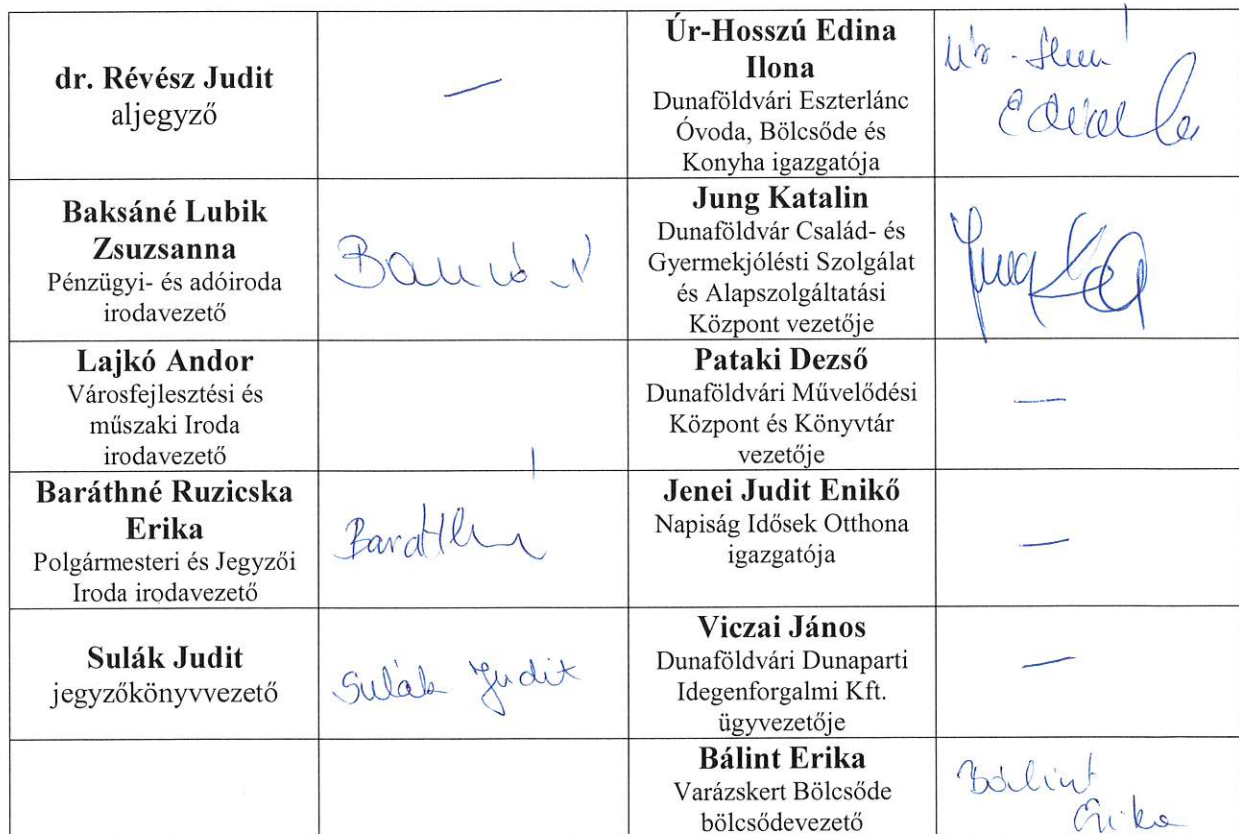 dr. Révész Judit
aljegyző
—
Úr-Hosszú Edina
Ilona
Dunaföldvári Eszterlánc
Óvoda, Bölcsőde és
Konyha igazgatója
Baksáné Lubik
Zsuzsanna
Pénzügyi- és adóiroda
irodavezető
Jung Katalin
Dunaföldvár Család- és
Gyermekjólésti Szolgálat
és Alapszolgáltatási
Központ vezetője
Jung
Lajkó Andor
Városfejlesztési és
műszaki Iroda
irodavezető
Pataki Dezső
Dunaföldvári Művelődési
Központ és Könyvtár
vezetője
—
Baráthné Ruzicska
Erika
Polgármesteri és Jegyzői
Iroda irodavezető
Jenei Judit Enikő
Napiság Idősek Otthona
igazgatója
—
Sulák Judit
jegyzőkönyvvezető
Sulák Judit
Viczai János
Dunaföldvári Dunaparti
Idegenforgalmi Kft.
ügyvezetője
—
Bálint Erika
Varázskert Bölcsőde
bölcsődevezető
Bálint
Erika